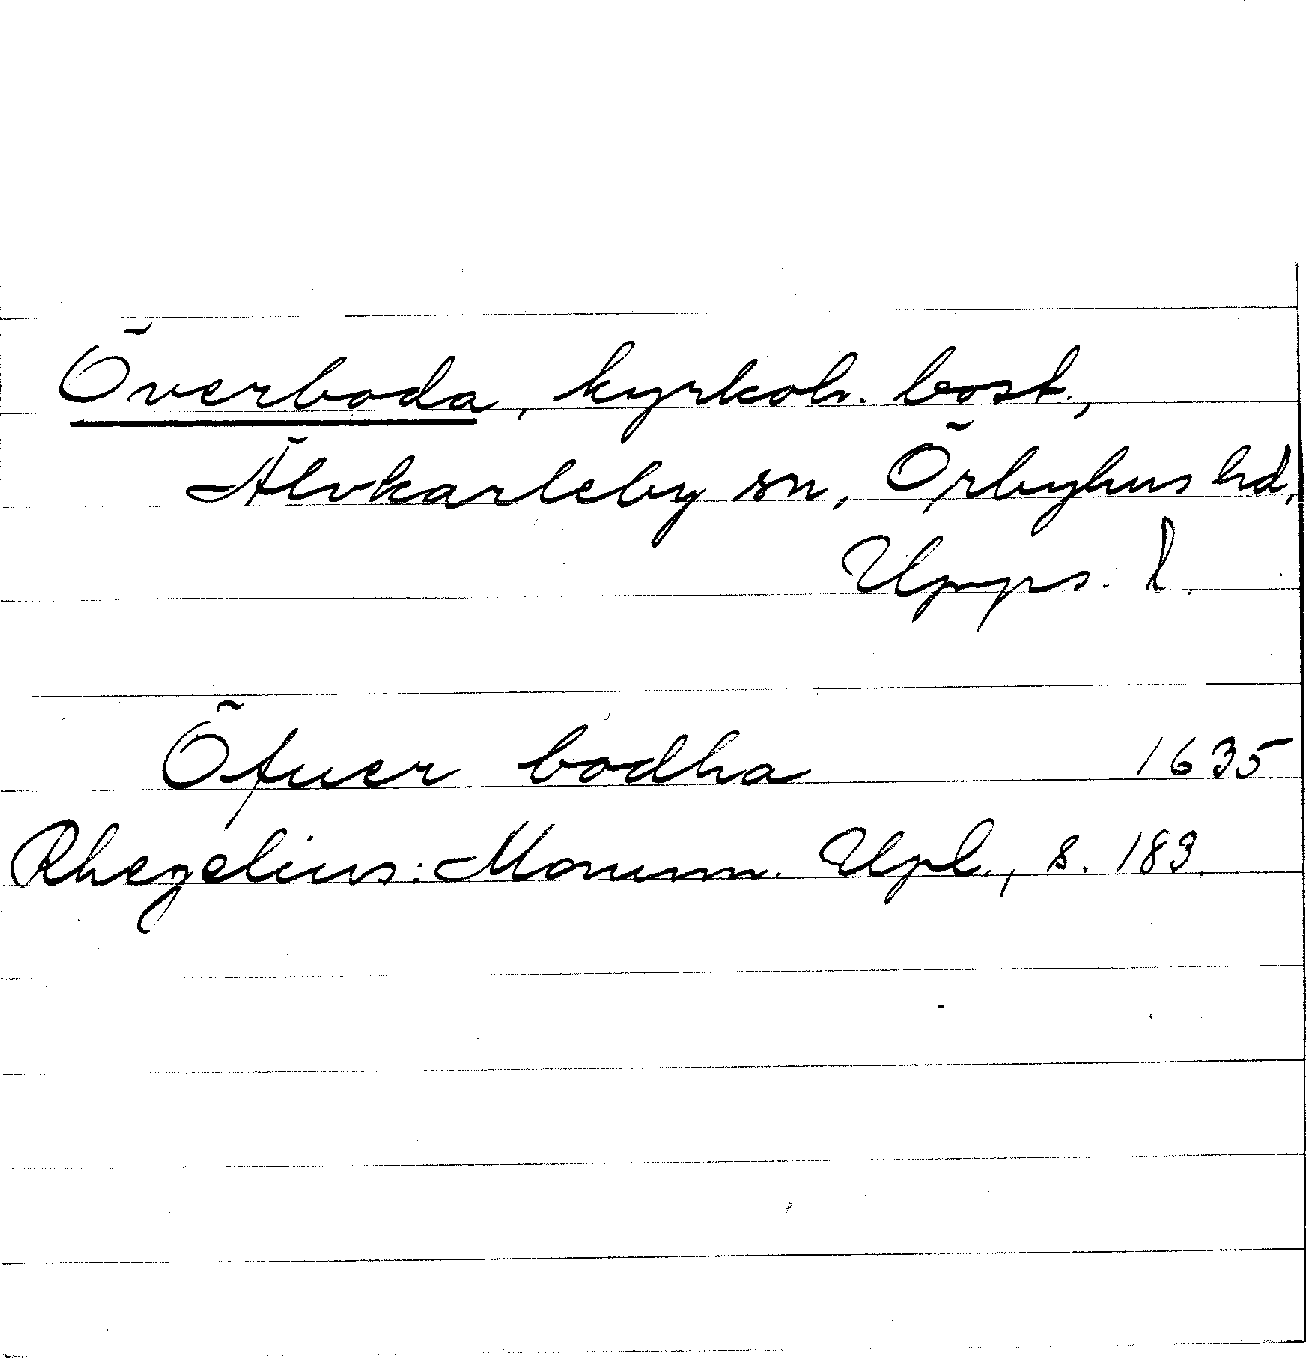 Överboda, kyrkoh. bost.,
Älvkarleby sn, Örbyhus hd,
Upps. l.
Öfuer bodha 1635
Rhezelius: Monum. Upl., s. 183.